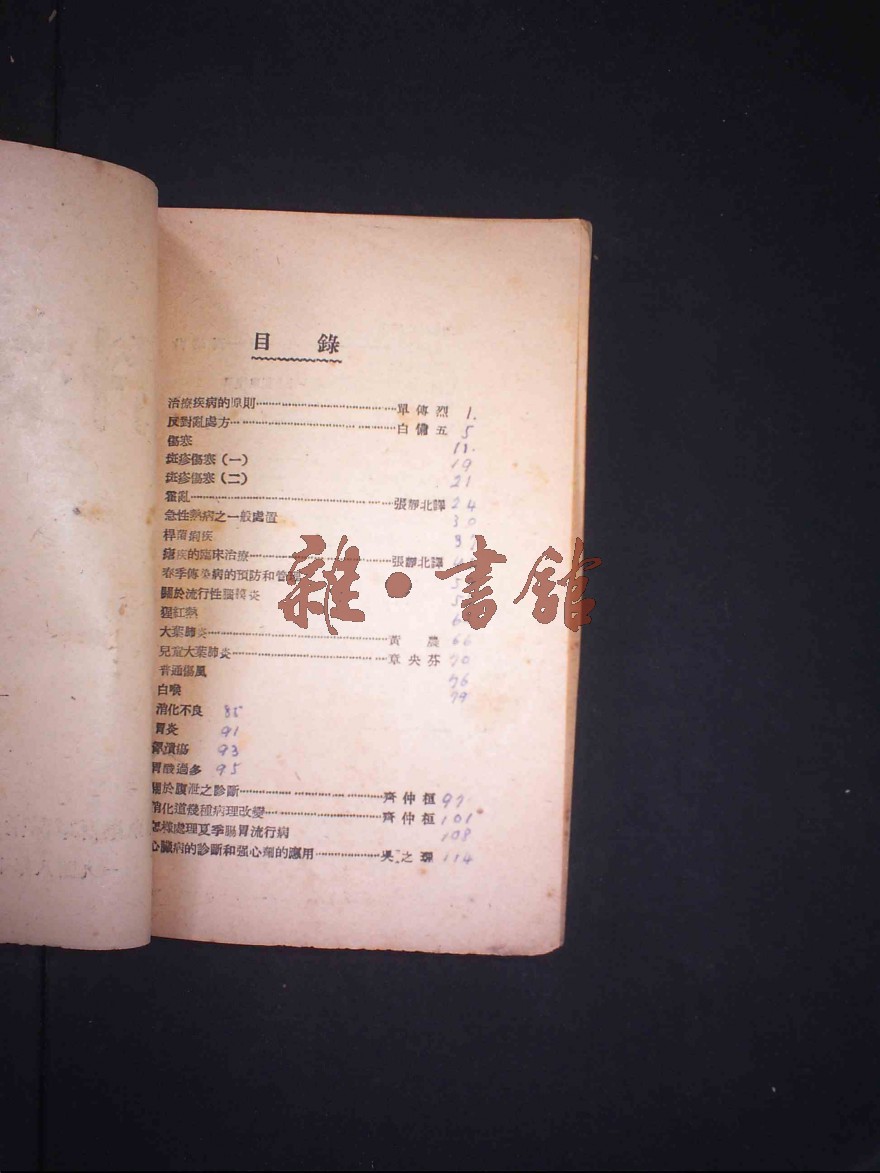 目 錄
治療疾病的原則 單傳烈 1.
反對亂處方 白備五 5
傷寒 11.
斑疹傷寒(一) 19
斑疹傷寒(二) 21
霍亂 張靜北譯 24
急性熱病之一般處置 30
桿菌痢疾 3
瘧疾的臨床治療 張靜北譯 4
春季傳染病的預防和管理 5
關於流行性腦膜炎 5
猩紅熱 6
大葉肺炎 黃農 66
兒童大葉肺炎 章央芬 70
普通傷風 76
白喉 79
消化不良 85
胃炎 91
胃潰瘍 93
胃酸過多 95
關於腹泄之診斷 齊仲桓 97
消化道幾種病理改變 齊仲桓 101
怎樣處理夏季腸胃流行病 108
心臟病的診斷和强心劑的應用 吳之理 114
雜·書館